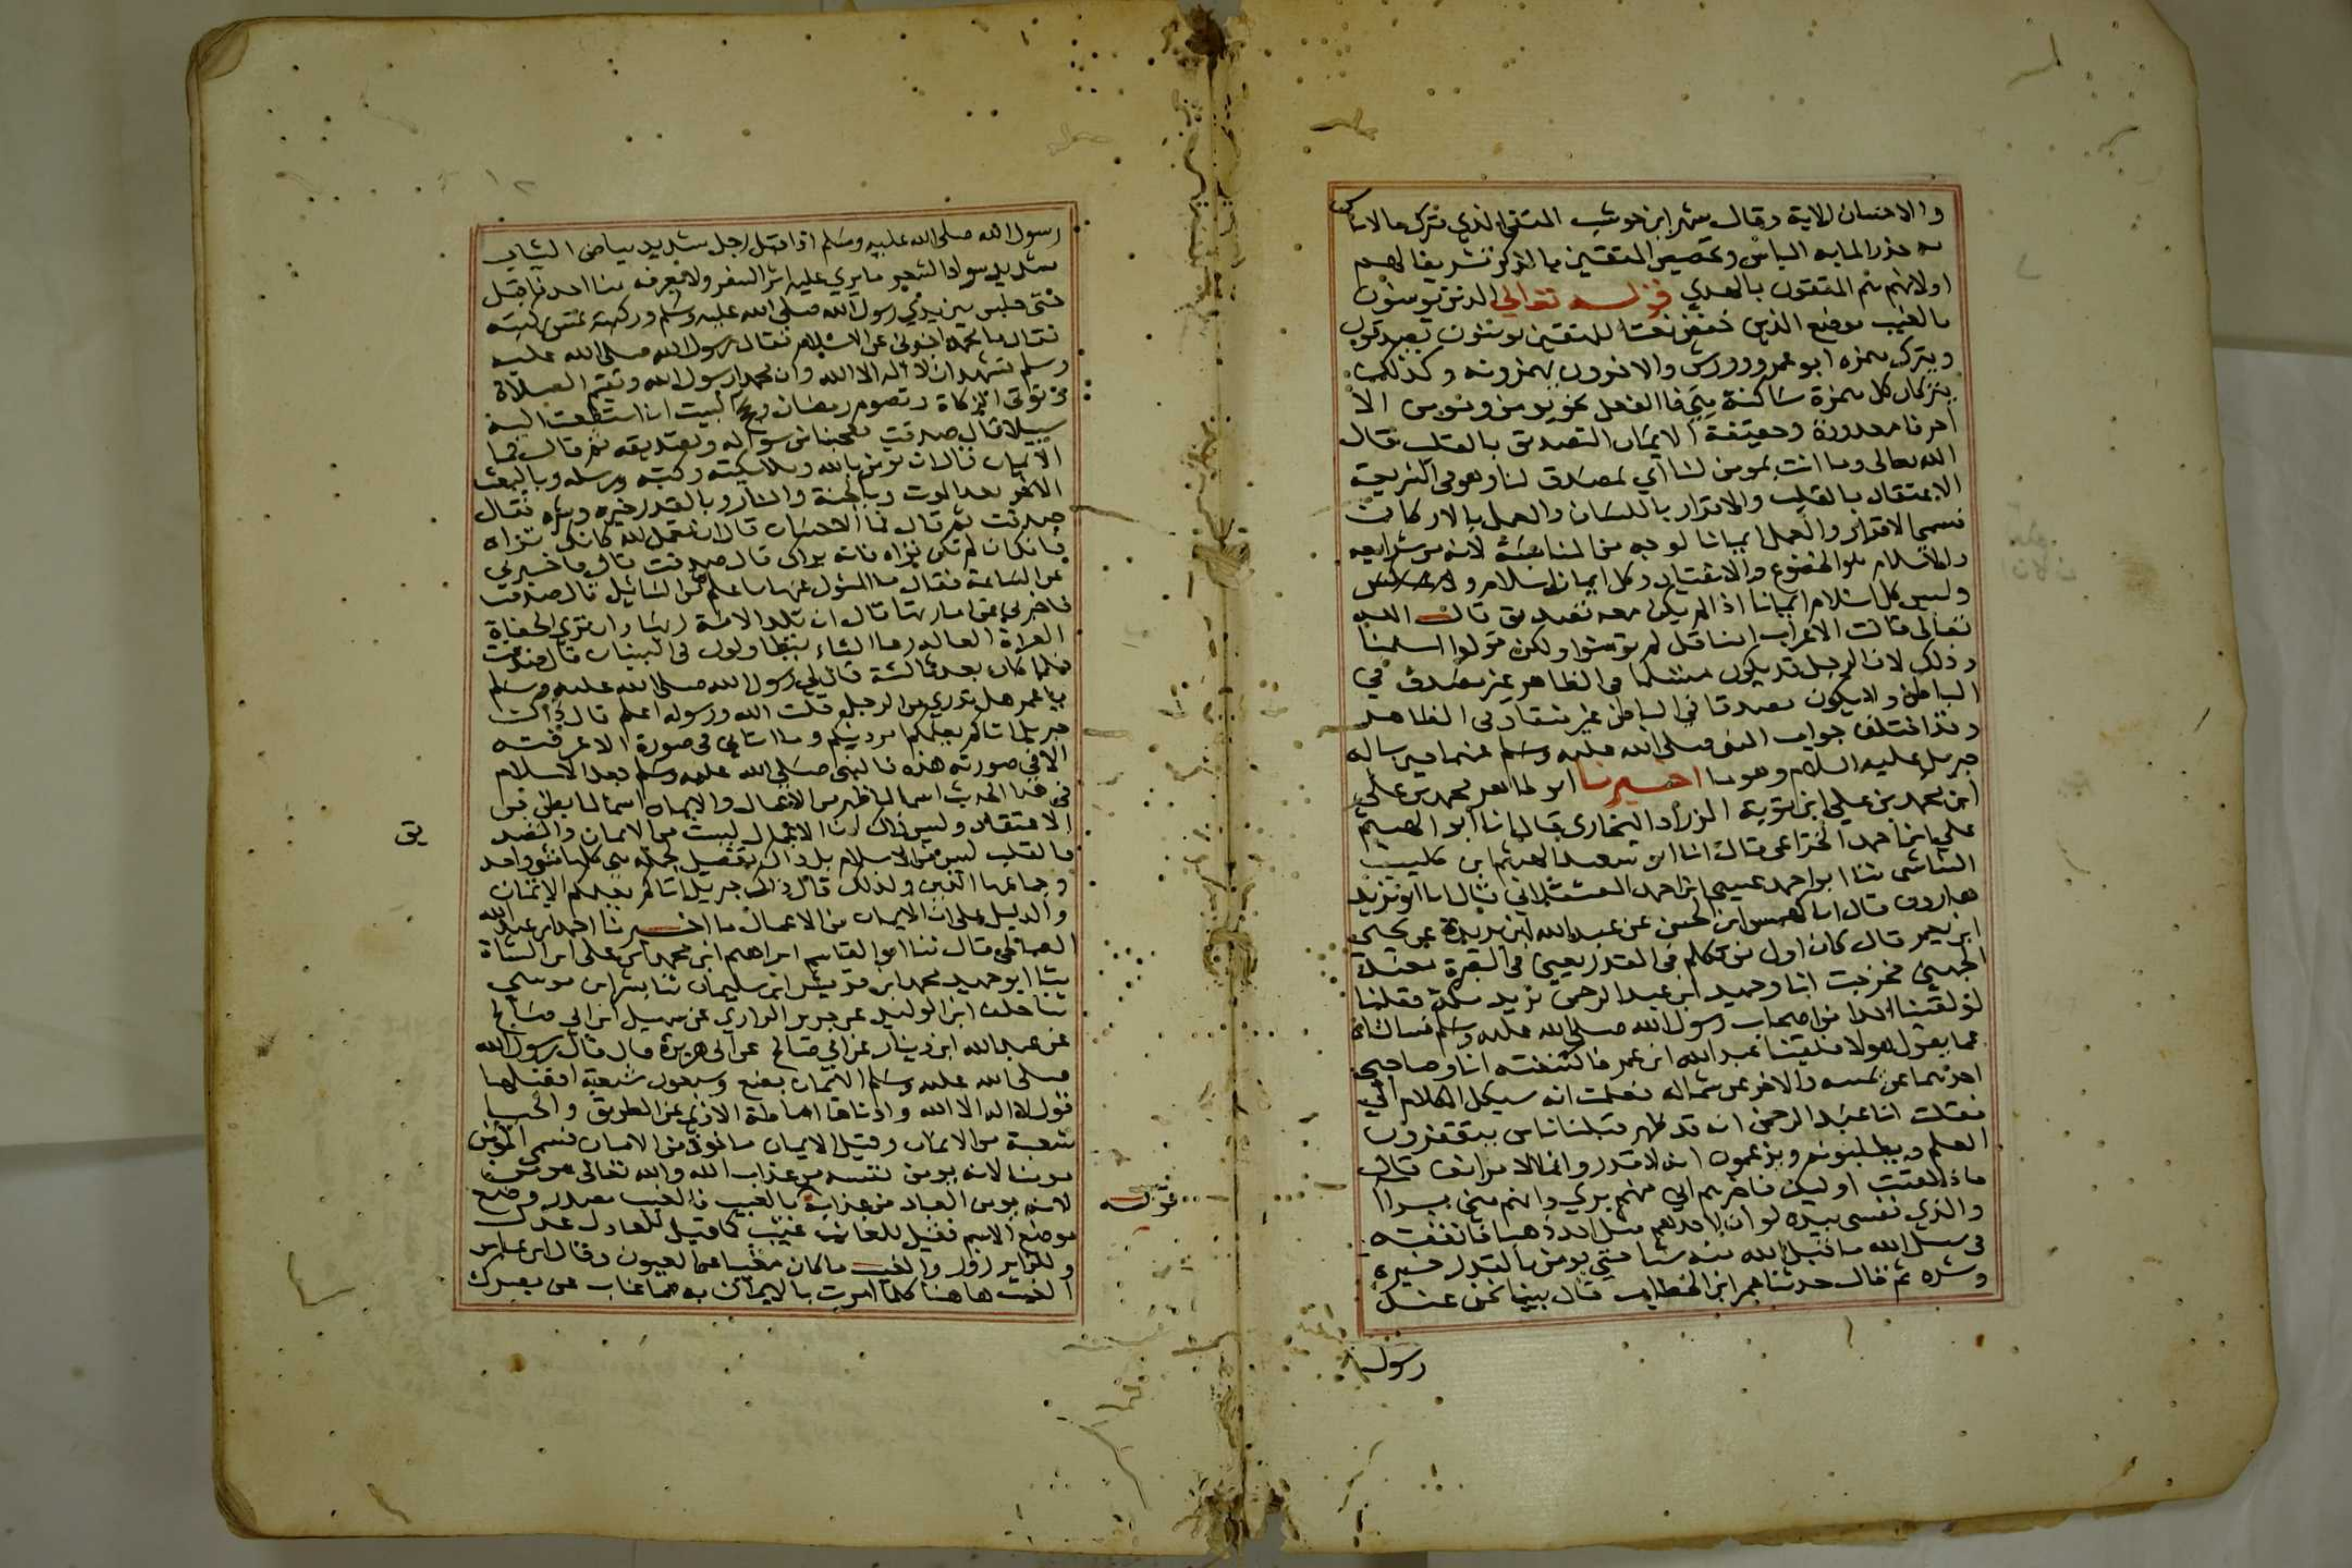 والاحسان الاية وقال شهر ابن حوشب المتقي الذي يترك ما لا باس
به حذرا لما به الباس وتخصيص المتقين بالذكر تشريفا لهم
اولانهم هم المتقون بالهدي قوله تعالي الذين يومنون
بالغيب موضع الذين خفض نعتا للمتقين يومنون يصدقون
ويترك همزه ابو عمرو وورش والاخرون يهمزونه وكذلك
يتركان كل همزة ساكنة هي فا الفعل نحو يومن ونومن الا
احرفا معدودة وحقيقة الايمان التصديق بالقلب قال
الله تعالى وما انت بمومن لنا اي بمصدق لنا وهو في الشريعة
الاعتقاد بالقلب والاقرار باللسان والعمل بالاركان
فسمي الاقرار والعمل ايمانا لوجه من المناسبة لانه من شرايعه
والاسلام هو الخضوع والانقياد وكل ايمان اسلام
وليس كل اسلام ايمانا اذا لم يكن معه تصديق قال الله
تعالى قالت الاعراب امنا قل لم تومنوا ولكن قولوا اسلمنا
وذلك لان الرجل قد يكون مستسلما في الظاهر غير مصدق في
الباطن ولا يكون مصدقا في الباطن غير منقاد في الظاهر
وقد اختلف جواب النبي صلى الله عليه وسلم عنهما حين ساله
جبريل عليه السلام وهو ما اخبرنا ابو طاهر محمد بن علي
ابن محمد بن علي ابن بوية الزراد البخاري قال انا ابو القسم
علي ابن احمد الخزاعي قال انا ابو سعيد الهيثم ابن كليب
الشاشي ثنا ابو احمد عيسى ابن احمد العسقلاني قال انا ابو يزيد
هارون قال انا كهمس ابن الحسن عن عبد الله ابن بريدة عن يحيى
ابن يعمر قال كان اول من تكلم في القدر يعني في البصرة معبد
الجهني فخرجت انا وحميد ابن عبد الرحمن نريد مكة فقلنا
لو لقينا احدا من اصحاب رسول الله صلى الله عليه وسلم فسالناه
عما يقول هولا فلقينا عبد الله ابن عمر فاكتنفته انا وصاحبي
احدنا عن يمينه والاخر عن شماله فعلمت انه سيكل الكلام الي
فقلت ابا عبد الرحمن انه قد ظهر قبلنا ناس يتقفرون
العلم ويطلبونه ويزعمون ان لا قدر وانما الامر انف قال
فاذا لقيت اوليك فاخبرهم اني منهم بري وانهم مني براا
والذي نفسي بيده لو ان لاحدهم مثل احد ذهبا فانفقه
في سبيل الله ما قبل الله منه شيا حتي يومن بالقدر خيره
وشره ثم قال حدثنا عمر ابن الخطاب قال بينا نحن عند
رسول
رسول الله صلى الله عليه وسلم اذ اقبل رجل شديد بياض الثياب
شديد سواد الشعر ما يري عليه اثر السفر ولا يعرفه منا احد فاقبل
حتى جلس بين يدي رسول الله صلى الله عليه وسلم وركبته تمس ركبته
فقال يا محمد اخبرني عن الاسلام فقال رسول الله صلى الله عليه
وسلم تشهد ان لا اله الا الله وان محمدا رسول الله وتقيم الصلاة
وتوتي الزكاة وتصوم رمضان وتحج البيت ان استطعت اليه
سبيلا قال صدقت فعجبنا من سواله وتصديقه ثم قال فما
الايمان قال ان تومن بالله وملايكته وكتبه ورسله وبالبعث
الاخر بعد الموت وبالجنة والنار وبالقدر خيره وشره فقال
صدقت ثم قال فما الاحسان قال ان تعمل لله كانك تراه
فانك ان لم تكن تراه فانه يراك قال صدقت قال فاخبرني
عن الساعة فقال ما المسول عنها باعلم من السائل قال صدقت
فاخبرني عن اماراتها قال ان تلد الامة ربتها وان تري الحفاة
العراة العالة رعا الشاء يتطاولون في البنيان قال صدقت
فلما كان بعد ثالثة قال لي رسول الله صلى الله عليه وسلم
يا عمر هل تدري من الرجل قلت الله ورسوله اعلم قال ذاك
جبريل اتاكم يعلمكم امر دينكم وما اتاني في صورة الا عرفته
الا في صورته هذه فالنبي صلى الله عليه وسلم جعل الاسلام
في هذا الحديث اسما لما ظهر من الاعمال والايمان اسما لما بطن من
الاعتقاد وليس ذلك لان الاعمال ليست من الايمان والتصد
يق
بالقلب ليس من الاسلام بل ذلك تفصيل لجملة هي كلها شي واحد
وجماعها الدين ولذلك قال ذاك جبريل اتاكم يعلمكم الايمان
والدليل على ان الايمان من الاعمال ما اخبرنا احمد ابن عبد الله
الصالحي قال ثنا ابو القاسم ابراهيم ابن محمد ابن علي ابن الشاة
ثنا ابو حميد محمد ابن قريش ابن سليمان ثنا بشر ابن موسى
ثنا خلف ابن الوليد عن جرير الرازي عن سهيل ابن ابي صالح
عن عبد الله ابن دينار عن ابي صالح عن ابي هريرة قال قال رسول الله
صلى الله عليه وسلم الايمان بضع وسبعون شعبة افضلها
قول لا اله الا الله وادناها اماطة الاذى عن الطريق والحيا
شعبة من الايمان وقيل الايمان ماخوذ من الامان فسمي المومن
مومنا لانه يومن نفسه من عذاب الله والله تعالى مومن
لانه يومن العباد من عذابه بالغيب والغيب مصدر وضع
قوله
موضع الاسم فقيل للغائب غيب كما قيل للعادل عدل
وللزاير زور والغيب ما كان مغيبا عن العيون وقال ابن عباس
الغيب هاهنا كلما امرت بالايمان به مما غاب عن بصرك